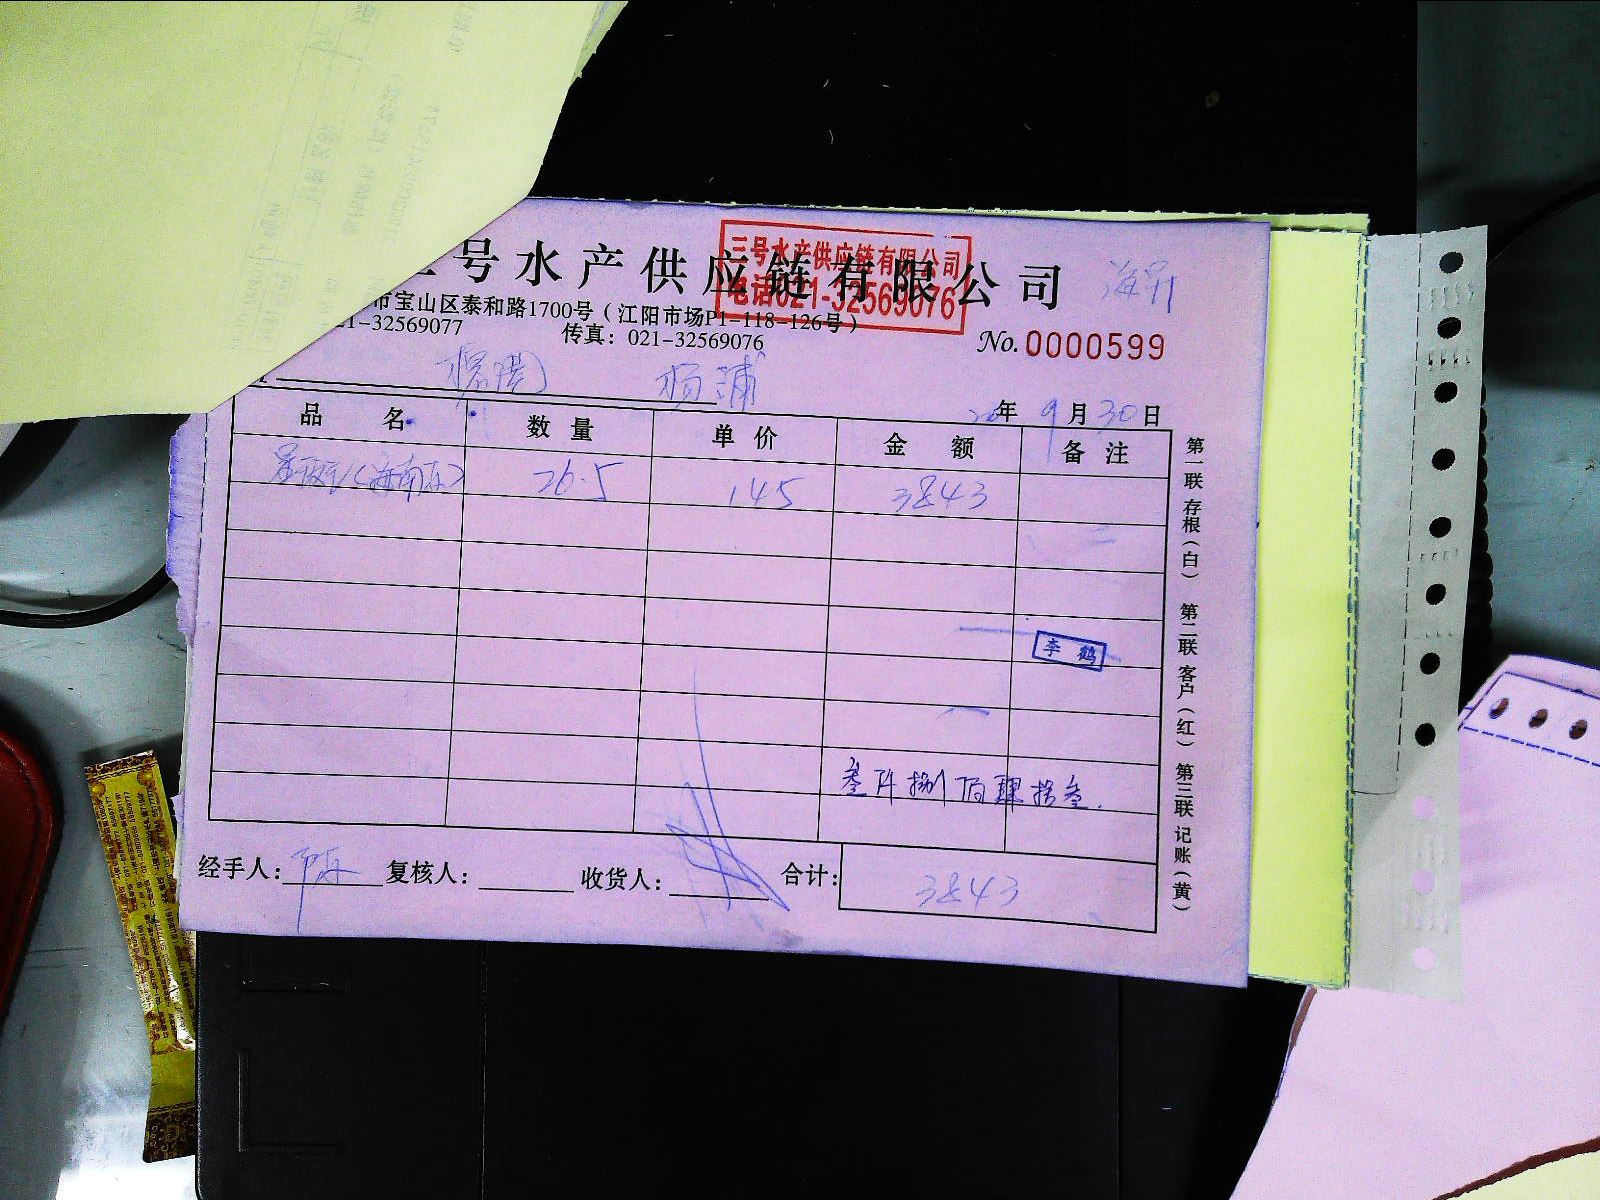 三号水产供应链有限公司
三号水产供应链有限公司
电话021-32569076
市宝山区泰和路1700号（江阳市场P1-118-126号）
21-32569077 传真：021-32569076
No. 0000599
杨浦
20年 9月30日
品 名 数 量 单 价 金 额 备 注
(海南东) 26.5 145 3843
李 鹤
叁仟捌佰肆拾叁.
经手人: 陈 复核人: 收货人: 合计: 3843
第一联 存根（白） 第二联 客户（红） 第三联 记账（黄）